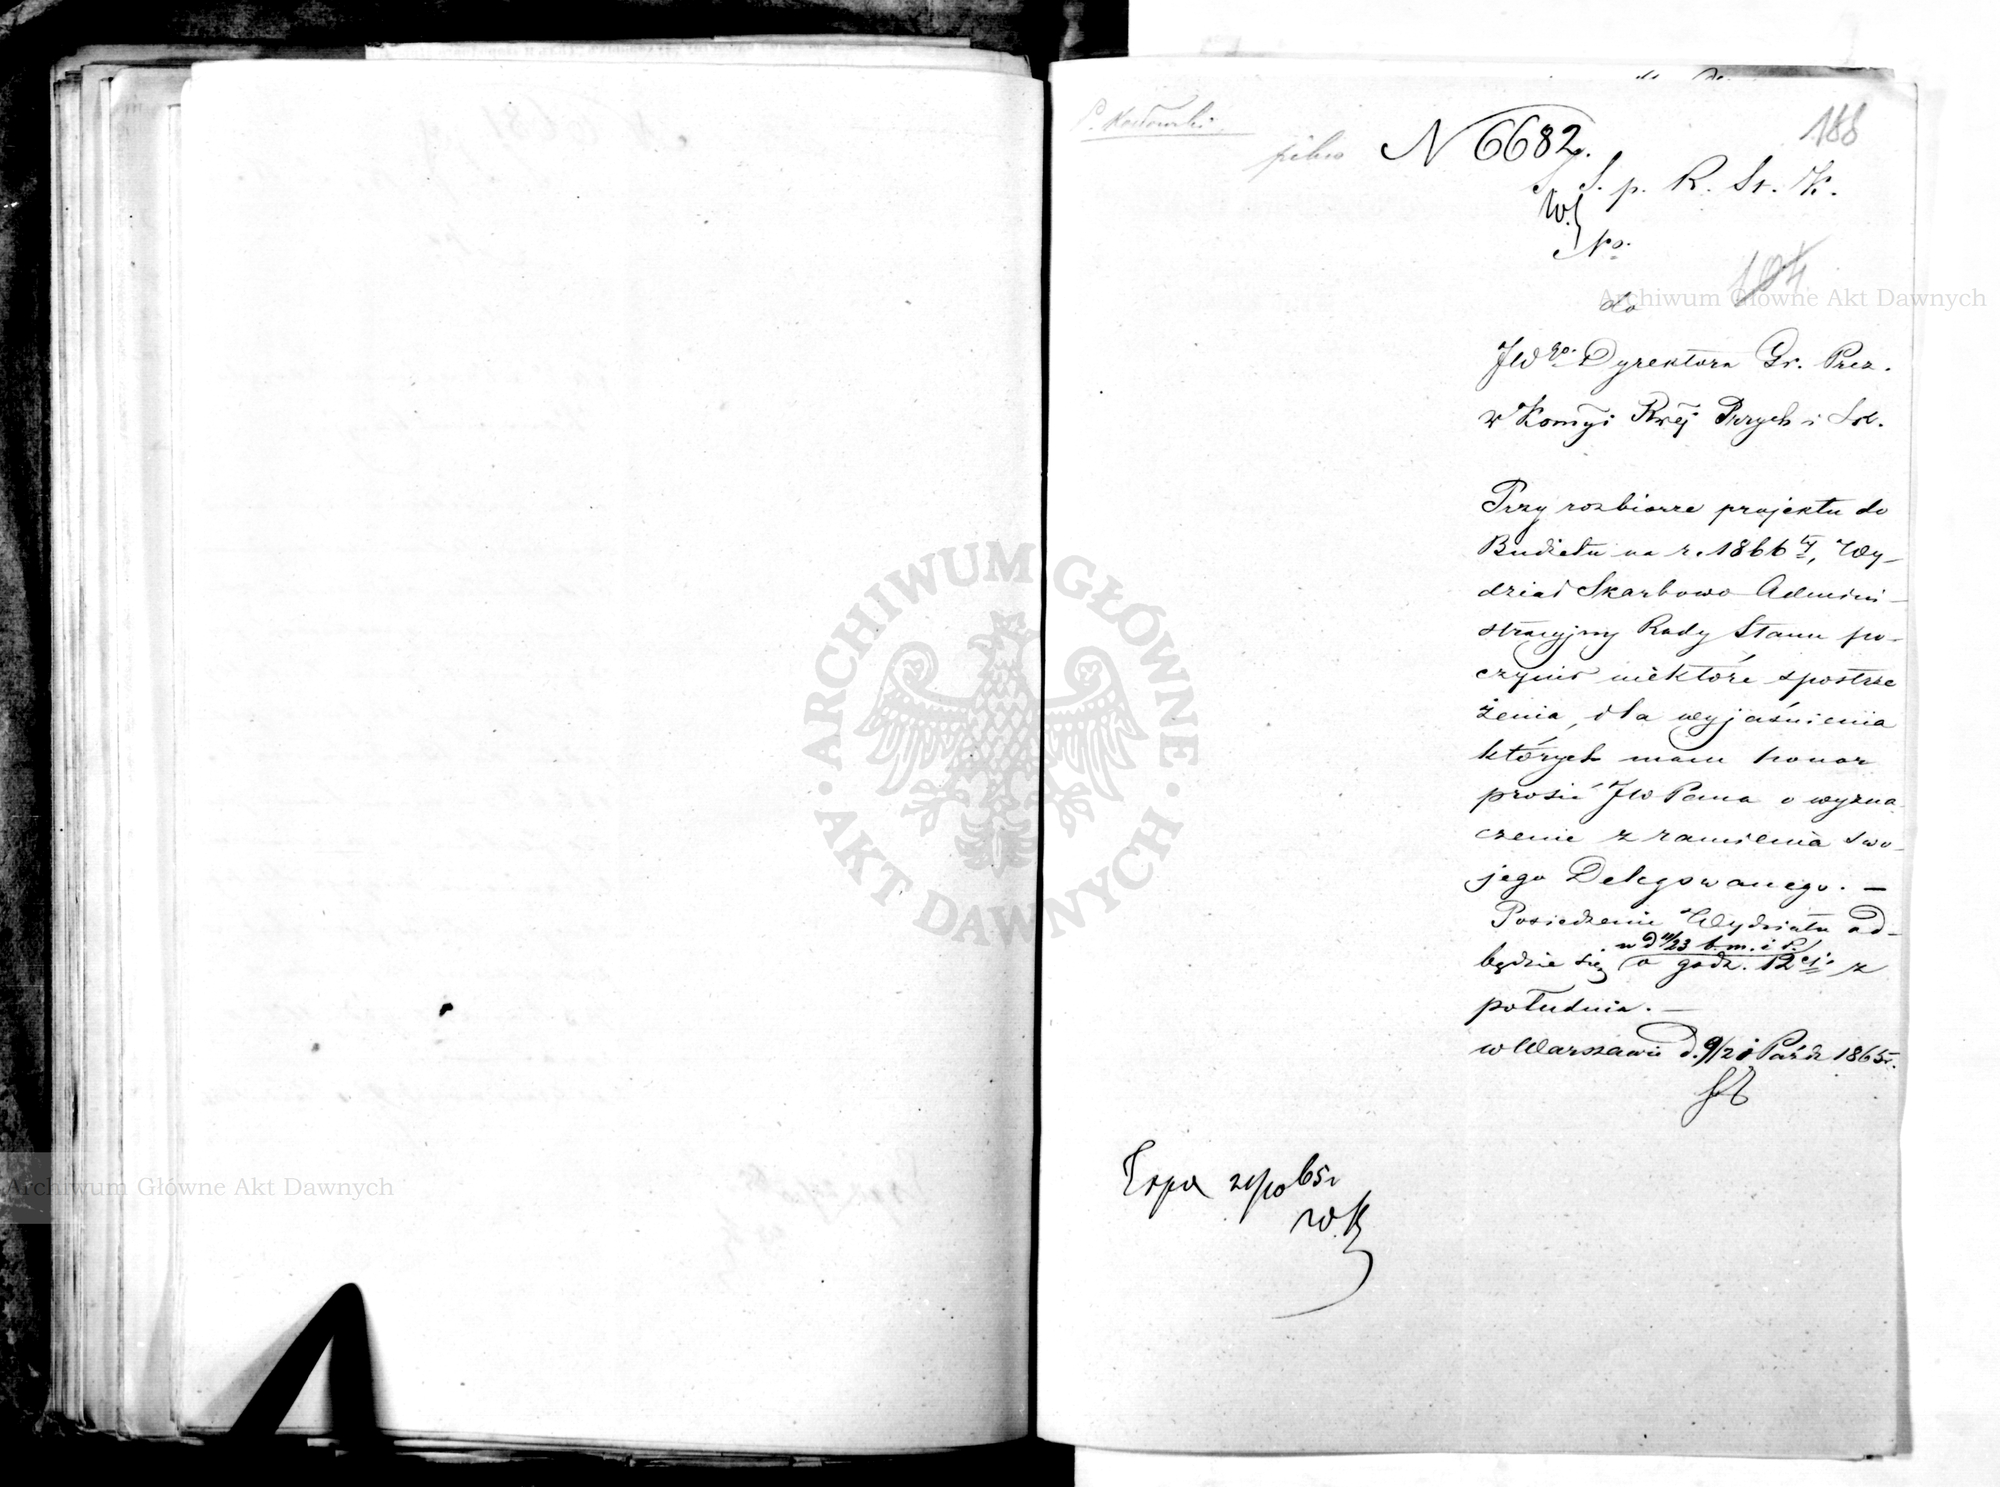 188
pilno N 6682.
S. p. R. St. K.
W.
No.
do
194
JWgo Dyrektora Gł. Prez.
w Komyi Rwej Przych i Sk.
Przy rozbiorze projektu do
Budżetu na r. 1866 ty, Wy-
dział Skarbowo Admini-
stracyjny Rady Stanu po-
czynił niektóre spostrze
żenia, dla wyjaśnienia
których mam honor
prosić JW Pana o wyzna
czenie z ramienia swo-
jego Delegowanego. —
Posiedzenie Wydziału od-
w d 11/23 b. m. i r.
będzie się o godz. 12 ej z
południa. —
w Warszawie d. 9/21 Paźdz 1865r.
21/10 65r
W. K
ARCHIWUM GŁÓWNE
· AKT DAWNYCH ·
Archiwum Główne Akt Dawnych
Archiwum Główne Akt Dawnych